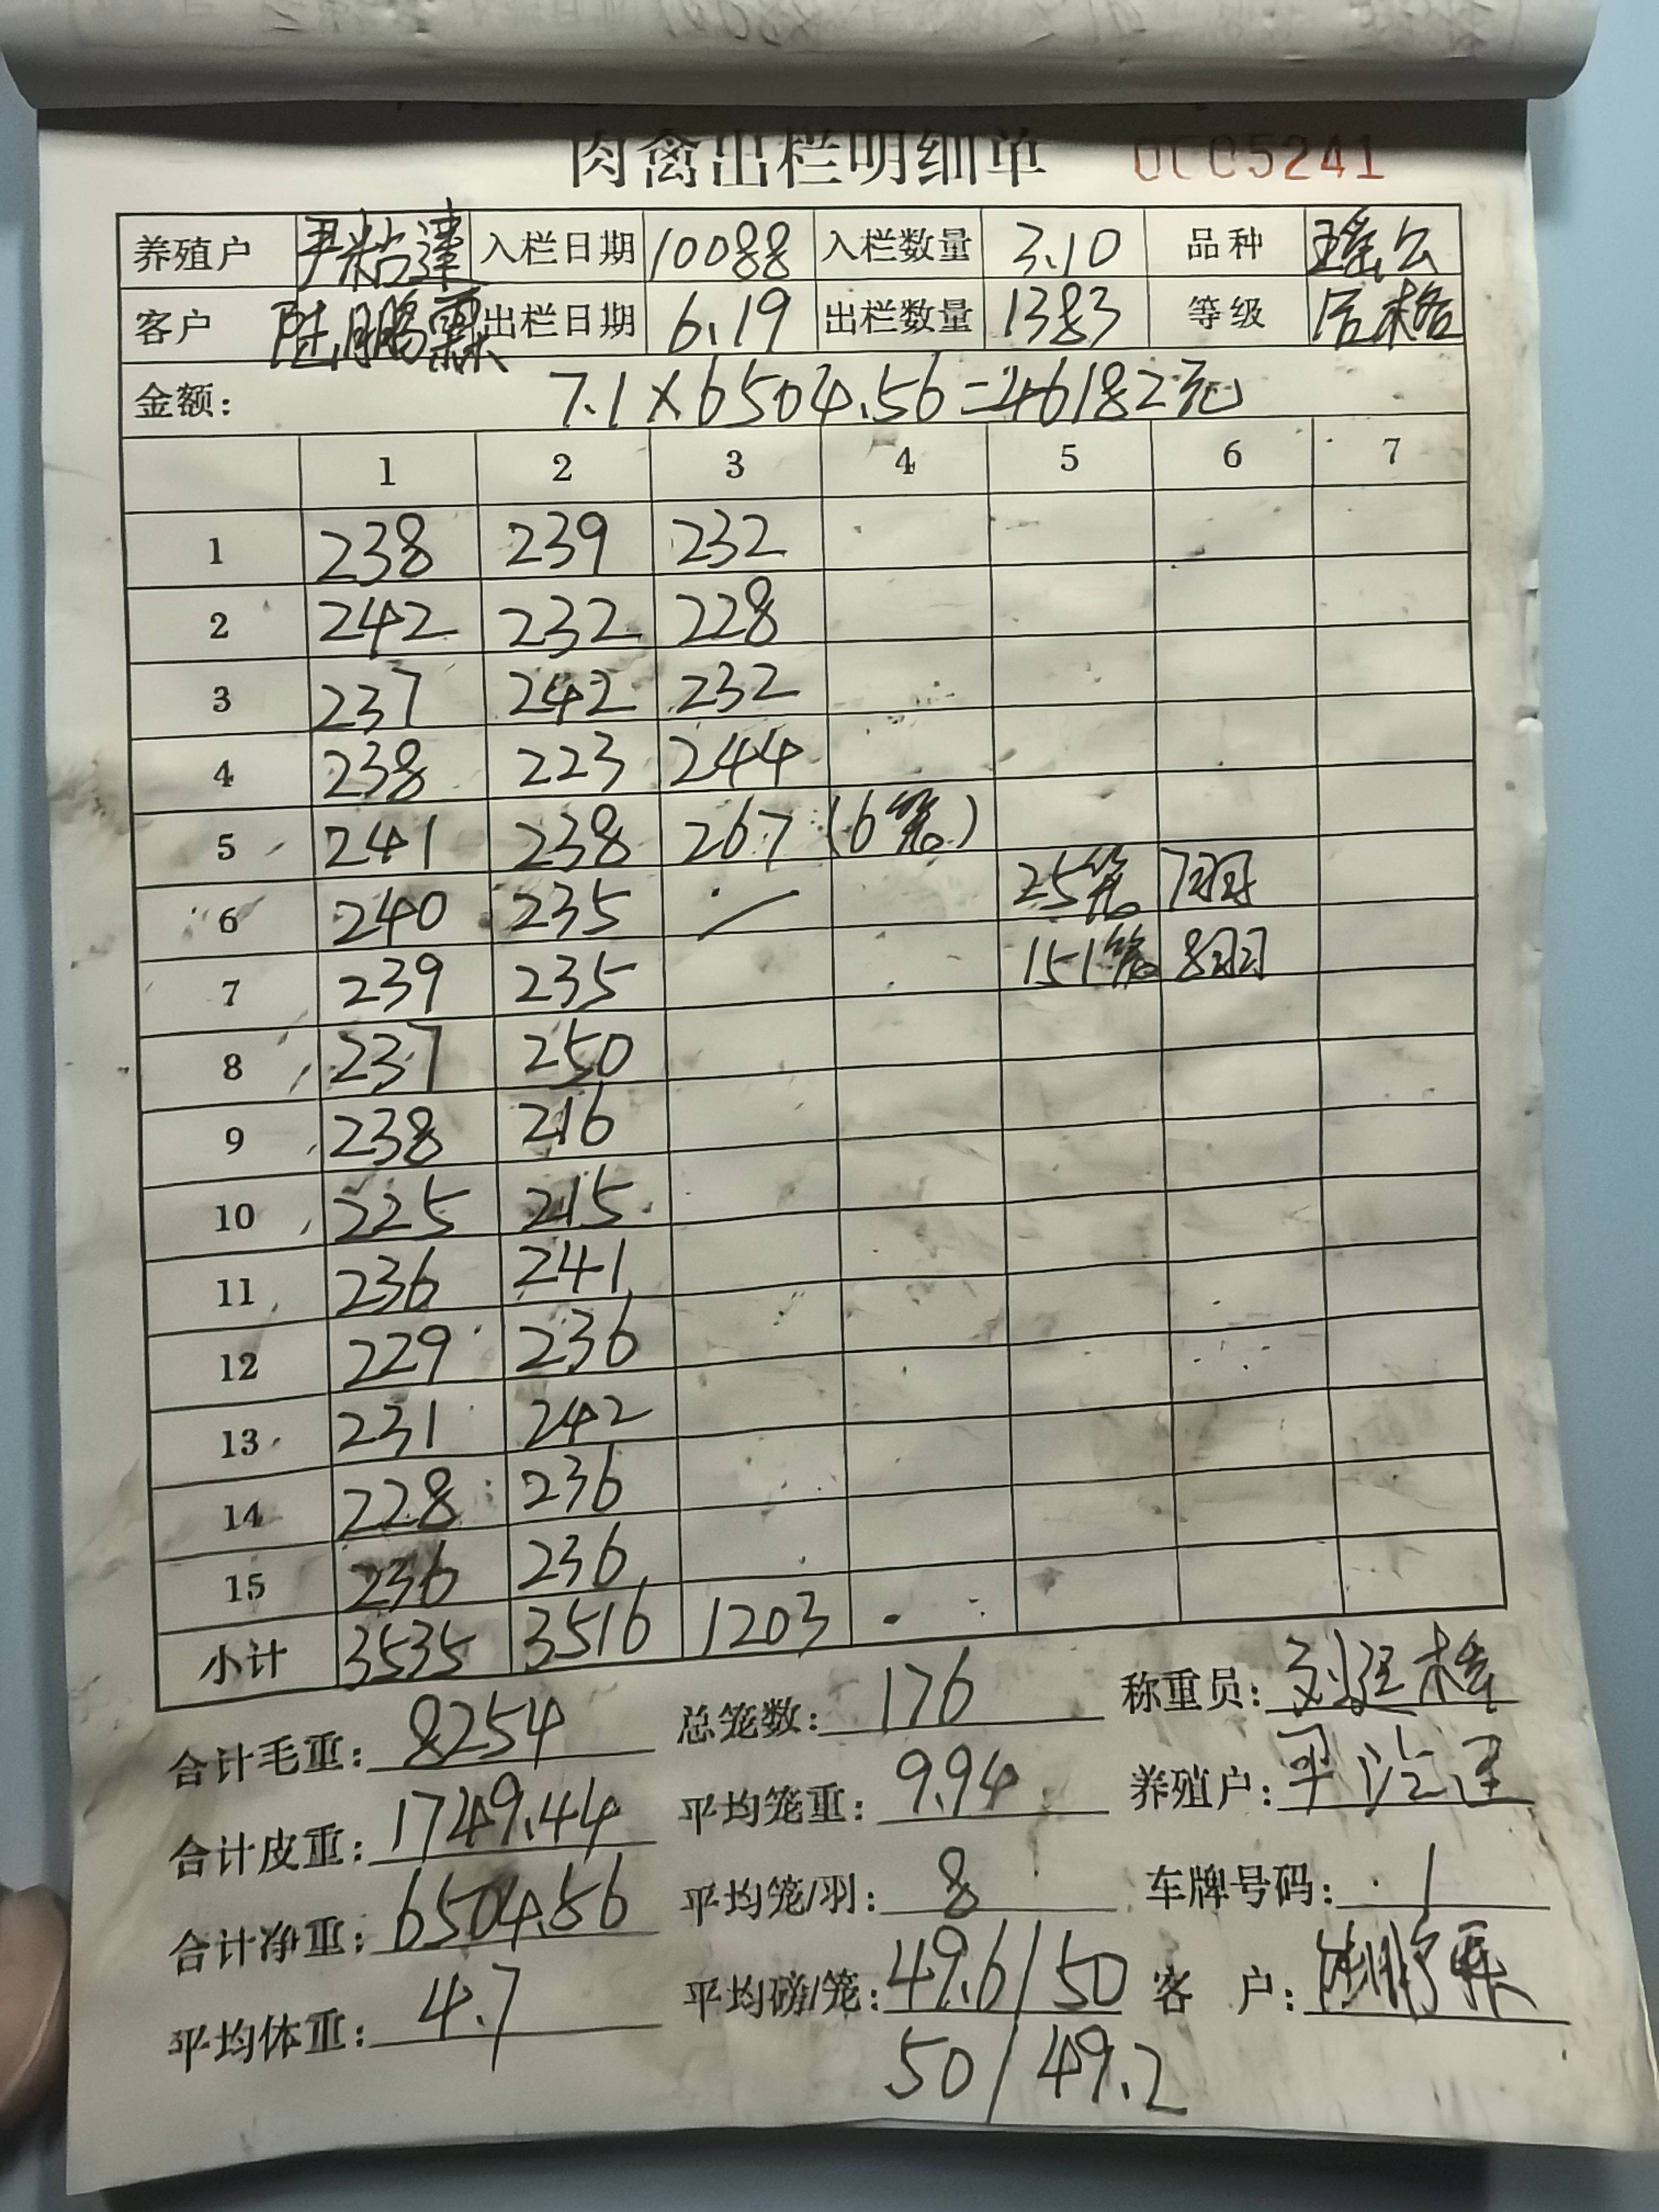 肉禽出栏明细单 0005241
养殖户 尹粘逢 入栏日期 10088 入栏数量 3.10 品种 瑶公
客户 陆鹏霖 出栏日期 6.19 出栏数量 1383 等级 合格
金额: 7.1×6504.56=46182元
1 2 3 4 5 6 7
1 238 239 232
2 242 232 228
3 237 242 232
4 238 223 244
5 241 238 267 (6笼)
6 240 235 25笼 7羽
7 239 235 151笼 8羽
8 237 250
9 238 216
10 225 215
11 236 241
12 229 236
13 231 242
14 228 236
15 236 236
小计 3535 3516 1203
合计毛重: 8254 总笼数: 176 称重员: 刘廷
合计皮重: 1749.44 平均笼重: 9.94 养殖户:
合计净重: 6504.56 平均笼/羽: 8 车牌号码: 1
平均体重: 4.7 平均磅/笼: 49.6/50 客 户: 陆鹏霖
50/49.2